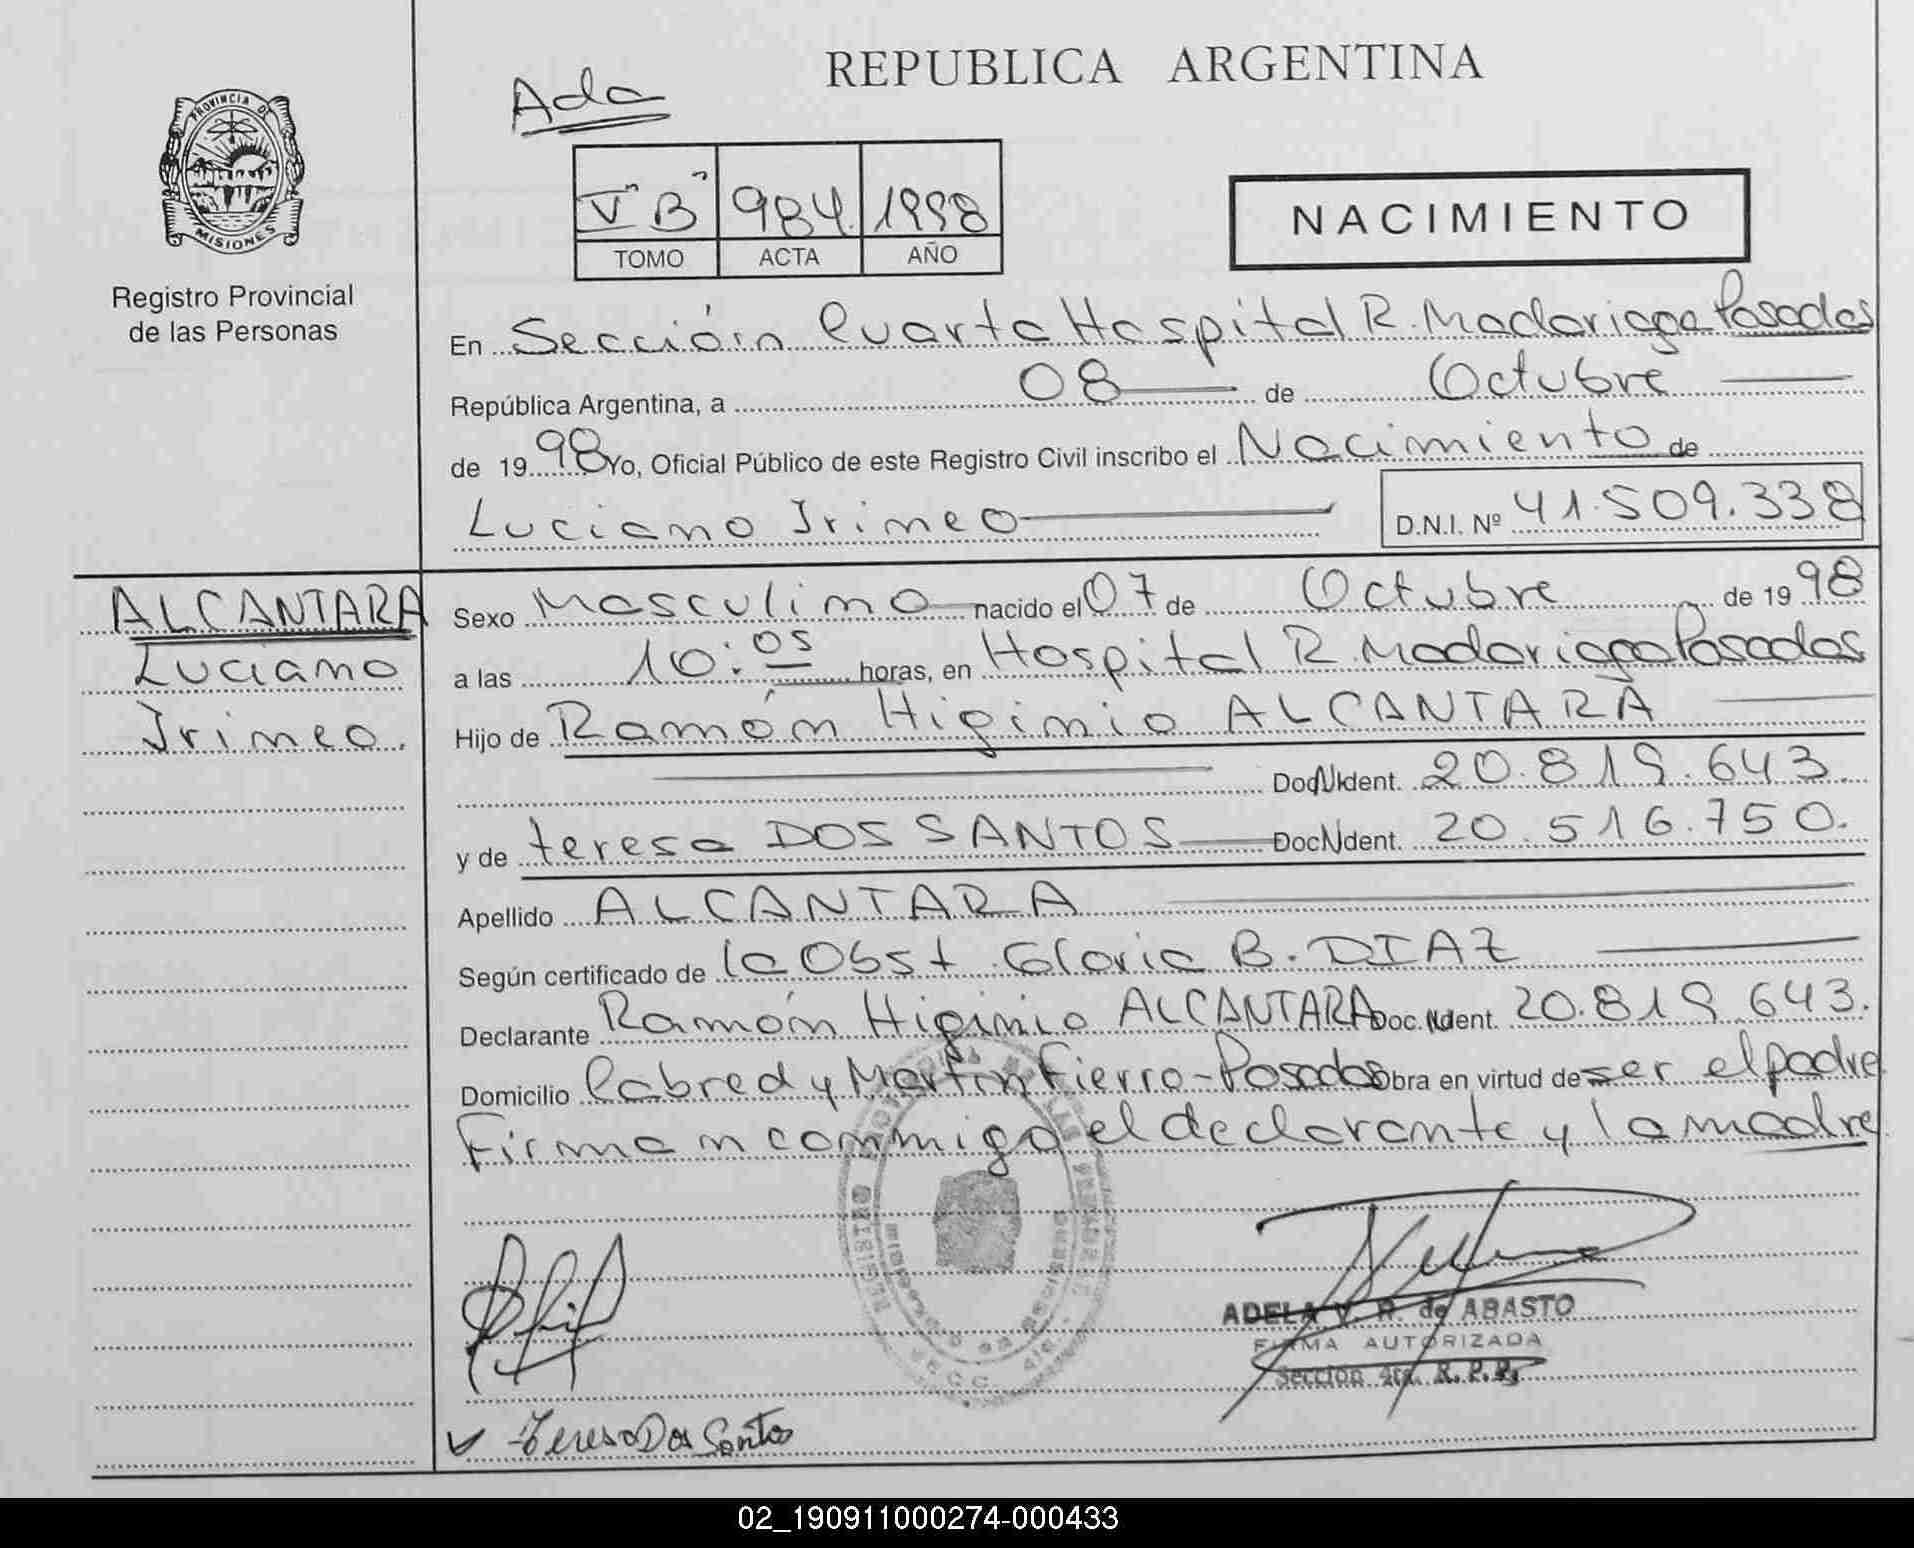 REPUBLICA ARGENTINA
Ada
PROVINCIA DE
MISIONES
Registro Provincial
de las Personas
V "B" 984. 1998
TOMO ACTA AÑO
NACIMIENTO
En Sección Cuarta Hospital R. Madariaga Posadas
República Argentina, a 08 de Octubre
de 19 98 Yo, Oficial Público de este Registro Civil inscribo el Nacimiento de
Luciano Irineo D.N.I. Nº 41.509.338
ALCANTARA
Luciano
Irineo.
Sexo Masculino nacido el 07 de Octubre de 19 98
a las 10:05 horas, en Hospital R. Madariaga Posadas
Hijo de Ramón Higinio ALCANTARA
Doc. Ident. 20.819.643.
y de teresa DOS SANTOS Doc. Ident. 20.516.750.
Apellido ALCANTARA
Según certificado de la Obst. Gloria B. DIAZ
Declarante Ramón Higinio ALCANTARA Doc. Ident. 20.819.643.
Domicilio Cabred y Martín Fierro - Posadas Obra en virtud de ser el padre
Firman conmigo el declarante y la madre
ADELA V. R. de ABASTO
FIRMA AUTORIZADA
Sección 4ta. R. P. P.
Teresa Dos Santos
02_190911000274-000433